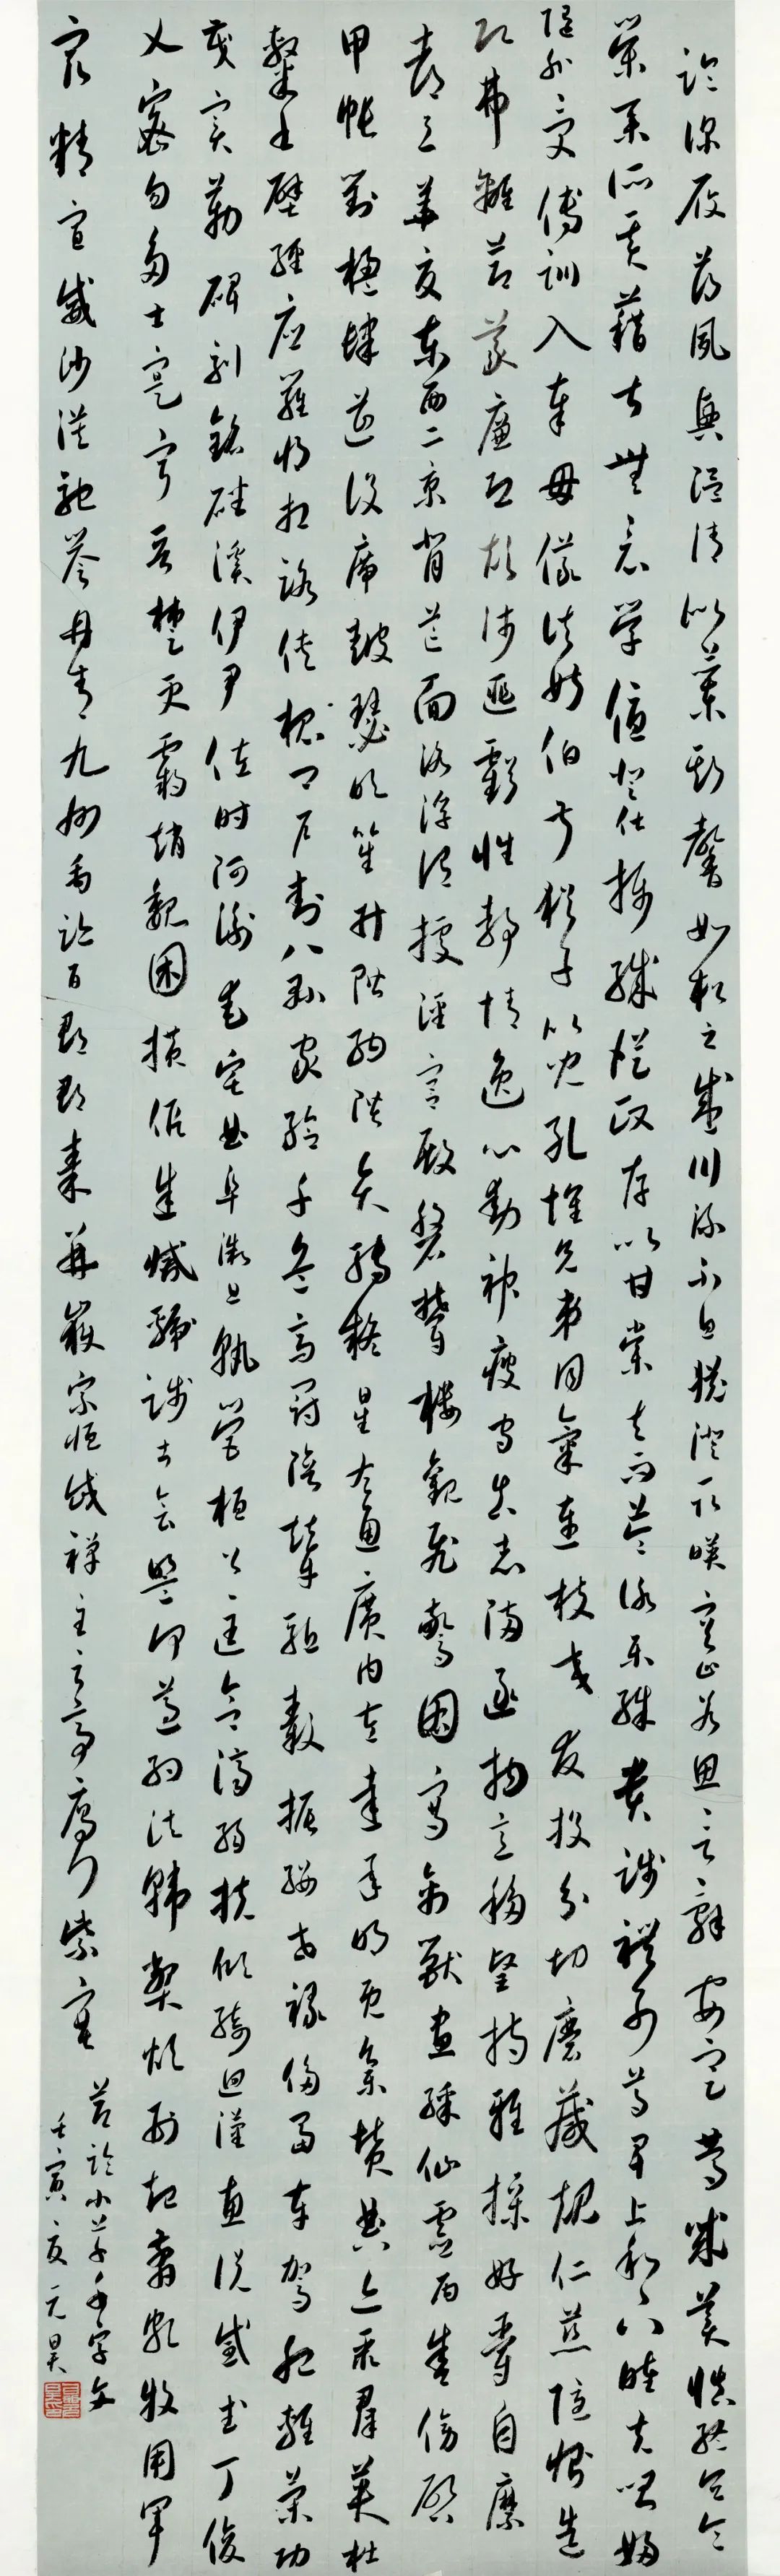 臨深履薄夙興溫凊似蘭斯馨如松之盛川流不息淵澄取映容止若思言辭安定篤誠美慎終宜令
榮業所基藉甚無竟學優登仕攝職從政存以甘棠去而益詠樂殊貴賤禮別尊卑上和下睦夫唱婦
隨外受傅訓入奉母儀諸姑伯叔猶子比兒孔懷兄弟同氣連枝交友投分切磨箴規仁慈隱惻造
次弗離節義廉退顛沛匪虧性靜情逸心動神疲守真志滿逐物意移堅持雅操好爵自縻
都邑華夏東西二京背芒面洛浮渭據涇宮殿盤鬱樓觀飛驚圖寫禽獸畫綵仙靈丙舍傍啟
甲帳對楹肆筵設席鼓瑟吹笙升階納陛弁轉疑星右通廣內左達承明既集墳典亦聚群英杜
稾書壁經府羅將相路俠槐卿戶封八縣家給千兵高冠陪輦驅轂振纓世祿侈富車駕肥輕策功
茂實勒碑刻銘磻溪伊尹佐時阿衡奄宅曲阜微旦孰營桓公匡合濟弱扶傾綺迴漢惠說感武丁俊
乂密勿多士寔寧晉楚更霸趙魏困橫假途滅虢踐土會盟何遵約法韓弊煩刑起翦頗牧用軍
最精宣威沙漠馳譽丹青九州禹跡百郡郡秦并嶽宗恒岱禪主云亭雁門紫塞
節臨小草千字文
壬寅夏元昊